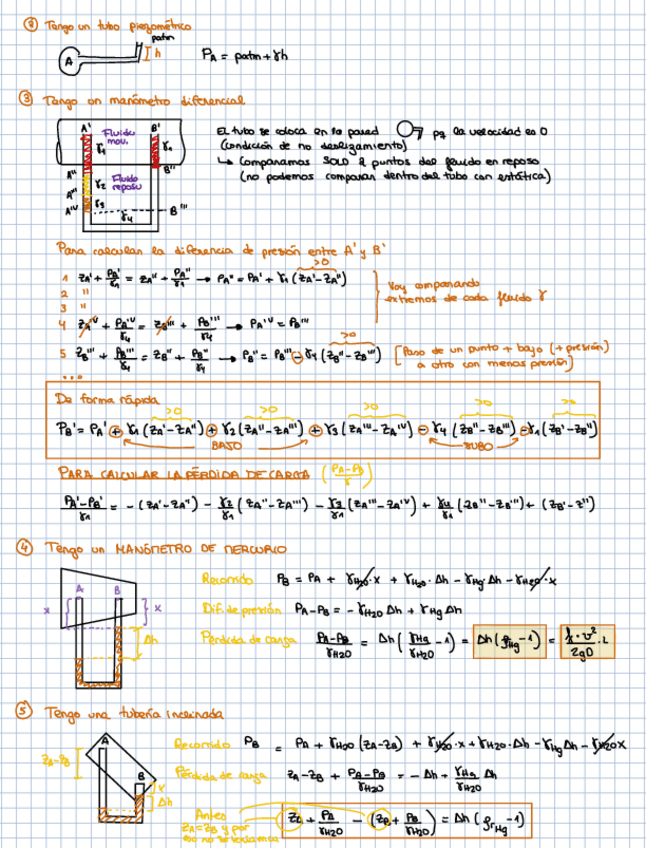 ② Tengo un tubo piezométrico
patm
A
h
P_A = patm + γh
③ Tengo un manómetro diferencial
A' Fluido mov. B'
γ1 γ1
A'' γ2 Fluido reposo B''
A''' γ3
A'V γ4 B'''
El tubo se coloca en la pared pq la velocidad es 0
(condición de no deslizamiento)
↳ Comparamos SOLO 2 puntos del fluido en reposo
(no podemos comparar dentro del tubo con estática)
Para calcular la diferencia de presión entre A' y B'
>0
1 z_A' + P_A'/γ1 = z_A'' + P_A''/γ1 → P_A'' = P_A' + γ1 (z_A' - z_A'')
2 "
3 "
Voy comparando
extremos de cada fluido γ
4 z_A'V + P_A'V/γ4 = z_B''' + P_B'''/γ4 → P_A'V = P_B'''
>0
5 z_B''' + P_B'''/γ4 = z_B'' + P_B''/γ4 → P_B'' = P_B''' - γ4 (z_B'' - z_B''') [Paso de un punto + bajo (+ presión)
a otro con menos presión]
...
De forma rápida
>0 >0 >0 >0 >0
P_B' = P_A' + γ1 (z_A' - z_A'') + γ2 (z_A'' - z_A''') + γ3 (z_A''' - z_A'V) - γ4 (z_B'' - z_B''') - γ1 (z_B' - z_B'')
BAJO SUBO
PARA CALCULAR LA PÉRDIDA DE CARGA (P_A - P_B/γ)
P_A' - P_B'/γ1 = - (z_A' - z_A'') - γ2/γ1 (z_A'' - z_A''') - γ3/γ1 (z_A''' - z_A'V) + γ4/γ1 (z_B'' - z_B''') + (z_B' - z'')
④ Tengo un MANÓMETRO DE MERCURIO
A B
x x
Δh
Recorrido P_B = P_A + γ_H2O · x + γ_H2O · Δh - γ_Hg · Δh - γ_H2O · x
Dif. de presión P_A - P_B = - γ_H2O Δh + γ_Hg Δh
Pérdida de carga P_A - P_B/γ_H2O = Δh (γ_Hg/γ_H2O - 1) = Δh (ρ_Hg - 1) = f · v²/2gD · L
⑤ Tengo una tubería inclinada
A
z_A - z_B
B
x
Δh
Recorrido P_B = P_A + γ_H2O (z_A - z_B) + γ_H2O · x + γ_H2O · Δh - γ_Hg Δh - γ_H2O x
Pérdida de carga z_A - z_B + P_A - P_B/γ_H2O = - Δh + γ_Hg/γ_H2O Δh
Antes
z_A = z_B y por
eso no se tenía en cuenta
z_A + P_A/γ_H2O - (z_B + P_B/γ_H2O) = Δh (ρr_Hg - 1)